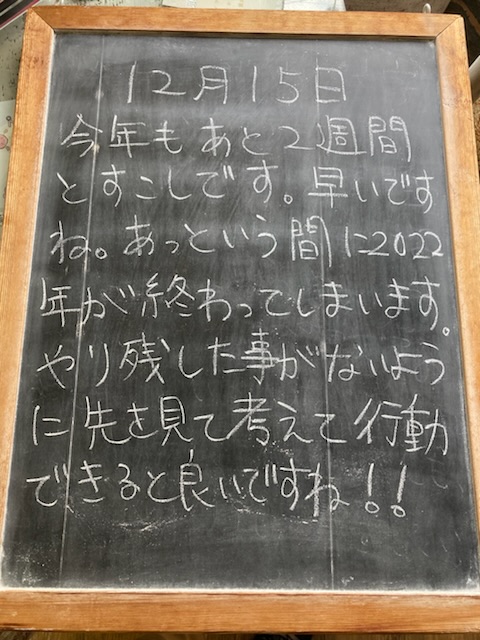 12月15日
今年もあと2週間
とすこしです。早いです
ね。あっという間に2022
年が終わってしまいます。
やり残した事がないよう
に先を見て考えて行動
できると良いですね!!